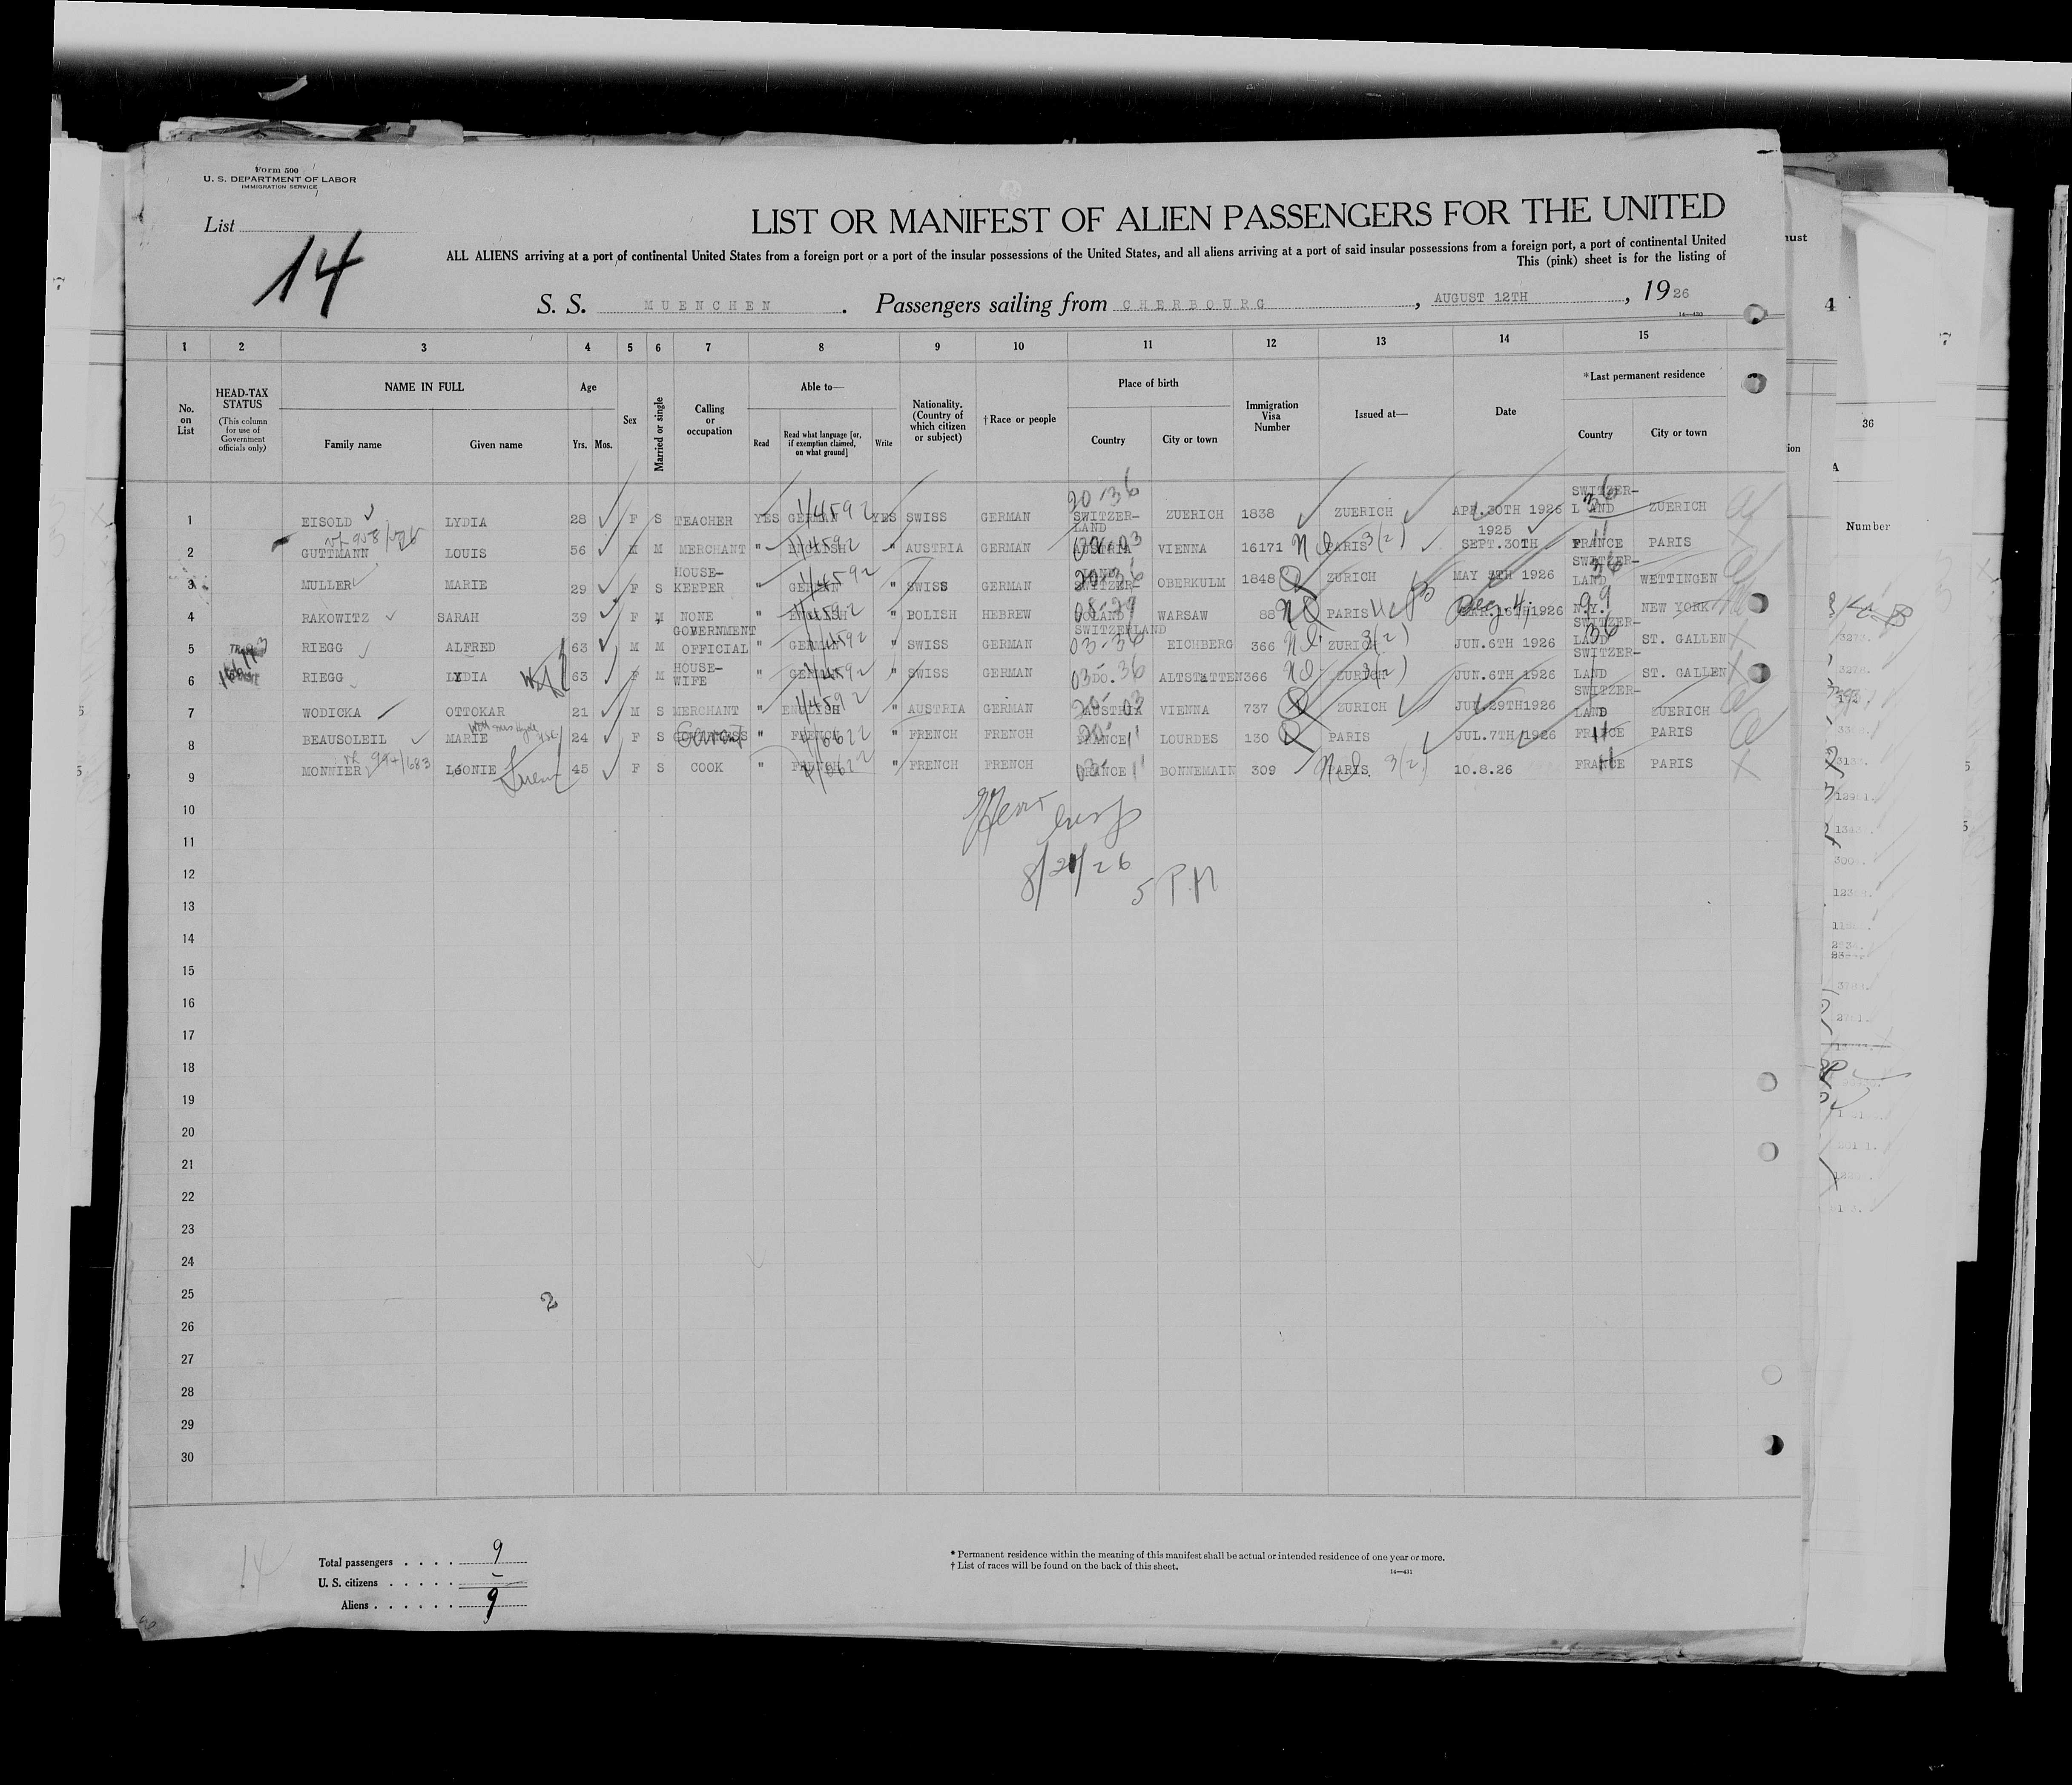 Form 500
U. S. DEPARTMENT OF LABOR
IMMIGRATION SERVICE
List
14
LIST OR MANIFEST OF ALIEN PASSENGERS FOR THE UNITED
ALL ALIENS arriving at a port of continental United States from a foreign port or a port of the insular possessions of the United States, and all aliens arriving at a port of said insular possessions from a foreign port, a port of continental United
This (pink) sheet is for the listing of
S. S. MUENCHEN. Passengers sailing from CHERBOURG, AUGUST 12TH, 1926
14—430
1 2 3 4 5 6 7 8 9 10 11 12 13 14 15
No. on List
HEAD-TAX STATUS (This column for use of Government officials only)
NAME IN FULL
Family name
Given name
Age
Yrs. Mos.
Sex
Married or single
Calling or occupation
Able to—
Read
Read what language [or, if exemption claimed, on what ground]
Write
Nationality. (Country of which citizen or subject)
†Race or people
Place of birth
Country
City or town
Immigration Visa Number
Issued at—
Date
*Last permanent residence
Country
City or town
1 EISOLD LYDIA 28 F S TEACHER YES GERMAN 1/4592 YES SWISS GERMAN 20-36 SWITZER-LAND ZUERICH 1838 ZUERICH APR.30TH 1926 SWITZER-LAND 36 ZUERICH
2 GUTTMANN LOUIS 56 M M MERCHANT " ENGLISH 1/4592 " AUSTRIA GERMAN AUSTRIA VIENNA 16171 PARIS 3(2) 1925 SEPT.30TH FRANCE 11 PARIS
3 MULLER MARIE 29 F S HOUSE-KEEPER " GERMAN 1/4592 " SWISS GERMAN 20-36 SWITZER- OBERKULM 1848 ZURICH MAY 5TH 1926 SWITZER-LAND 36 WETTINGEN
4 RAKOWITZ SARAH 39 F M NONE " ENGLISH 1/4592 " POLISH HEBREW POLAND WARSAW 88 PARIS 1926 N.Y. 99 NEW YORK
5 RIEGG ALFRED 63 M M GOVERNMENT OFFICIAL " GERMAN 1/4592 " SWISS GERMAN SWITZERLAND 03-36 EICHBERG 366 ZURICH 3(2) JUN.6TH 1926 SWITZER-LAND 36 ST. GALLEN
6 RIEGG LYDIA 63 F M HOUSE-WIFE " GERMAN 1/4592 " SWISS GERMAN DO. 03 36 ALTSTATTEN 366 ZURICH 3(2) JUN.6TH 1926 SWITZER-LAND ST. GALLEN
7 WODICKA OTTOKAR 21 M S MERCHANT " ENGLISH 1/4592 " AUSTRIA GERMAN AUSTRIA 20-03 VIENNA 737 ZURICH 29TH1926 SWITZER-LAND ZUERICH
8 BEAUSOLEIL MARIE 24 F S " FRENCH " FRENCH FRENCH FRANCE 20-11 LOURDES 130 PARIS JUL.7TH 1926 FRANCE 11 PARIS
9 MONNIER 994/683 LéONIE 45 F S COOK " FRENCH " FRENCH FRENCH FRANCE 03-11 BONNEMAIN 309 PARIS. 3(2) 10.8.26 FRANCE 11 PARIS
10
8/21/26
5 PM
11
12
13
14
15
16
17
18
19
20
21
22
23
24
25
2
26
27
28
29
30
14
Total passengers . . . . 9
U. S. citizens . . . . . –
Aliens . . . . . . 9
* Permanent residence within the meaning of this manifest shall be actual or intended residence of one year or more.
† List of races will be found on the back of this sheet.
14—431
4
36
Number